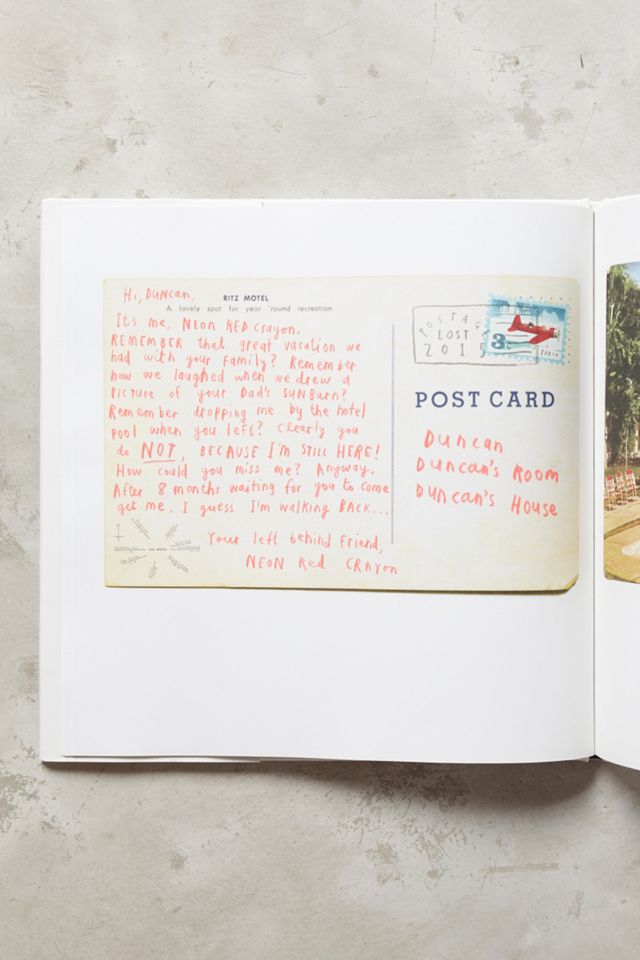 Hi, DUNCAN,
RITZ MOTEL
A lovely spot for year 'round recreation
It's me, NEON RED crayon.
REMEMBER that great vacation we
had with your family? Remember
how we laughed when we drew a
picture of your Dad's SUNBURN?
Remember dropping me by the hotel
pool when you left? Clearly you
do NOT, BECAUSE I'M STILL HERE!
How could you miss me? Anyway.
After 8 months waiting for you to come
get me, I guess I'm walking BACK...
Your left behind friend,
NEON Red CRAYON
POSTAGE
LOST
2015
3
POST CARD
Duncan
Duncan's Room
Duncan's House